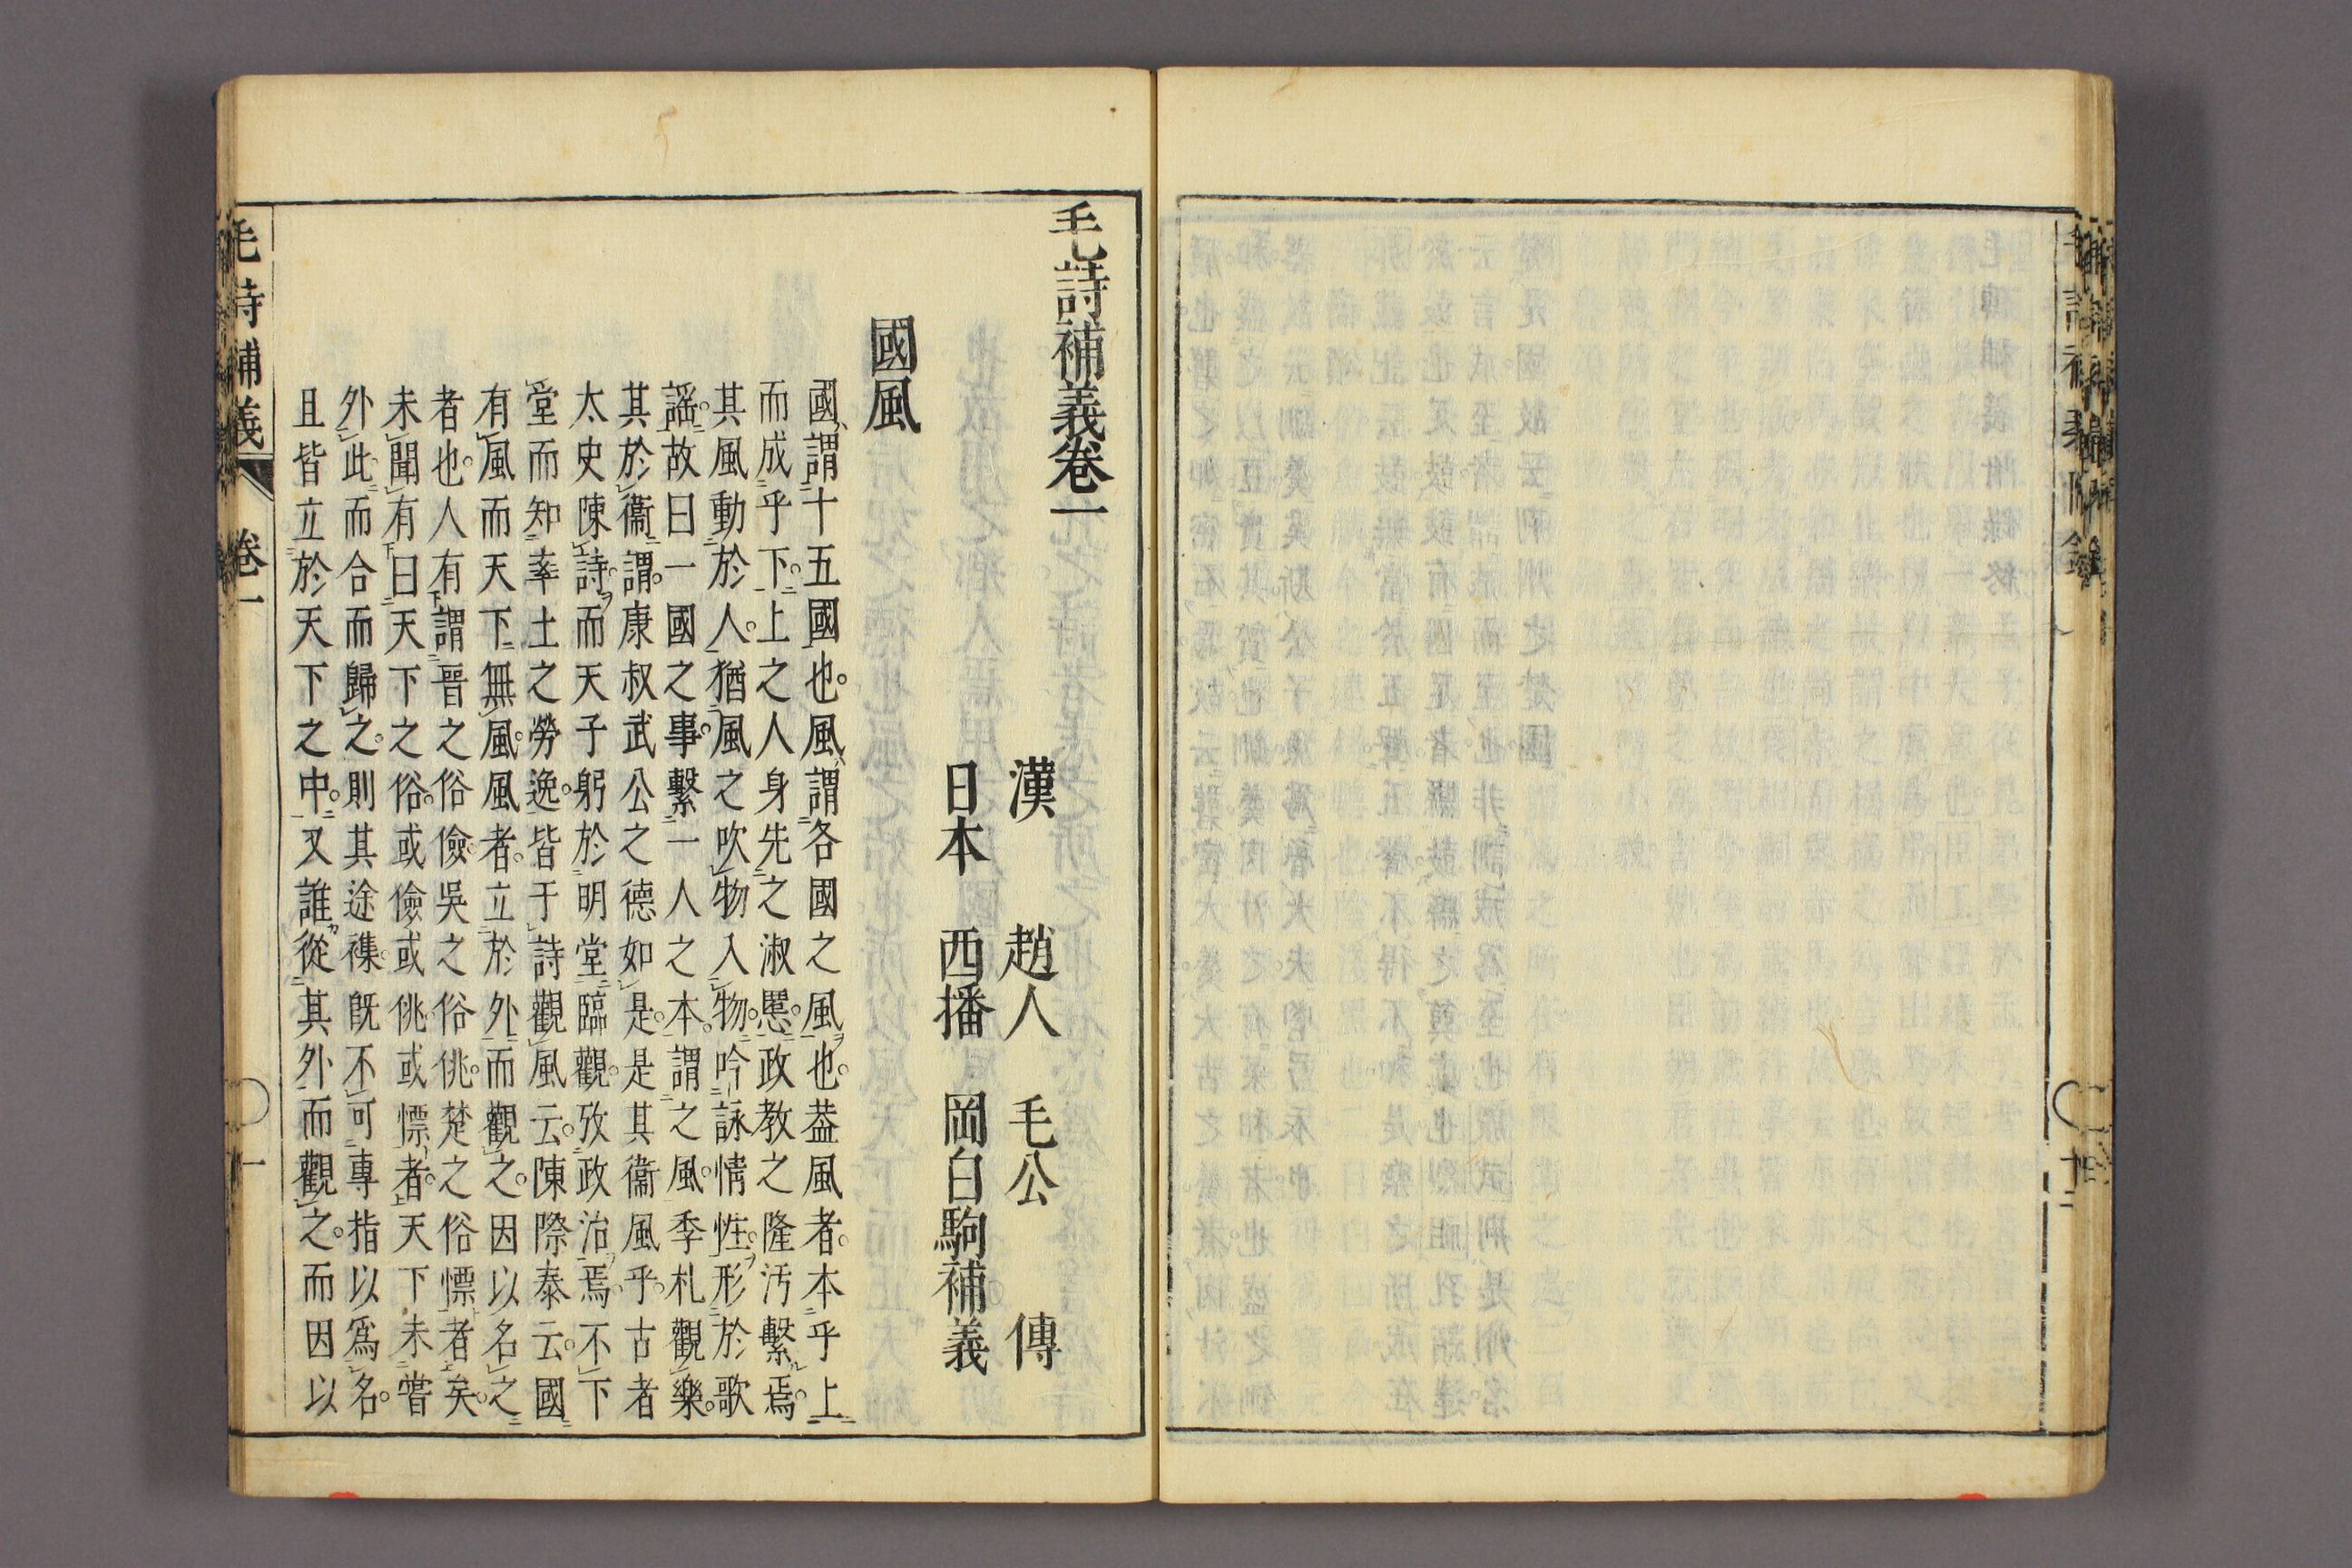 毛詩補義卷一
漢 趙人 毛公 傳
日本 西播 岡白駒補義
國風
國謂十五國也。風謂各國之風也。葢風者。本乎上
而成乎下。上之人身先之淑慝。政教之隆汚繫焉。
其風動於人。猶風之吹物入物。吟詠情性。形於歌
謡。故曰一國之事。繫一人之本。謂之風。季札觀樂。
其於衞謂。康叔武公之德如是。是其衞風乎。古者
太史陳詩。而天子躬於明堂臨觀。攷政治焉。不下
堂而知率土之勞逸。皆于詩觀風云。陳際泰云。國
有風而天下無風。風者。立於外而觀之。因以名之
者也。人有謂晉之俗儉。吳之俗佻。楚之俗慓者矣。
未聞有曰天下之俗。或儉或佻或慓者。天下未嘗
外此而合而歸之。則其途襍。旣不可專指以爲名。
且皆立於天下之中。又誰從其外而觀之。而因以
毛詩補義 卷一 一